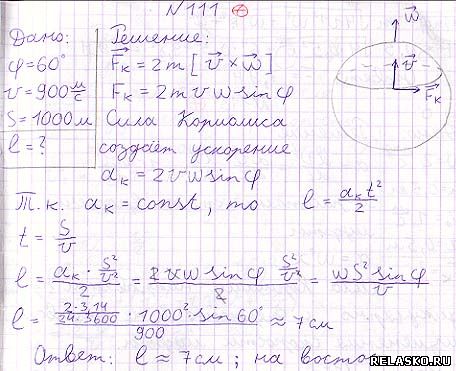 N 111
Дано:
φ=60°
v=900 м/с
S=1000м
l=?
Решение:
F⃗к = 2m[v⃗×w⃗]
Fк = 2m v w sin φ
Сила Кориолиса
создаёт ускорение
aк = 2vw sin φ
w⃗
v⃗
F⃗к
Т.к. aк = const, то l = aкt²/2
t = S/v
l = (aк · S²/v²)/2 = (2vw sin φ S²/v²)/2 = wS² sin φ/v
l = (2·3,14/24·3600 · 1000² · sin 60°)/900 ≈ 7см
Ответ: l ≈ 7см; на
RELASKO.RU